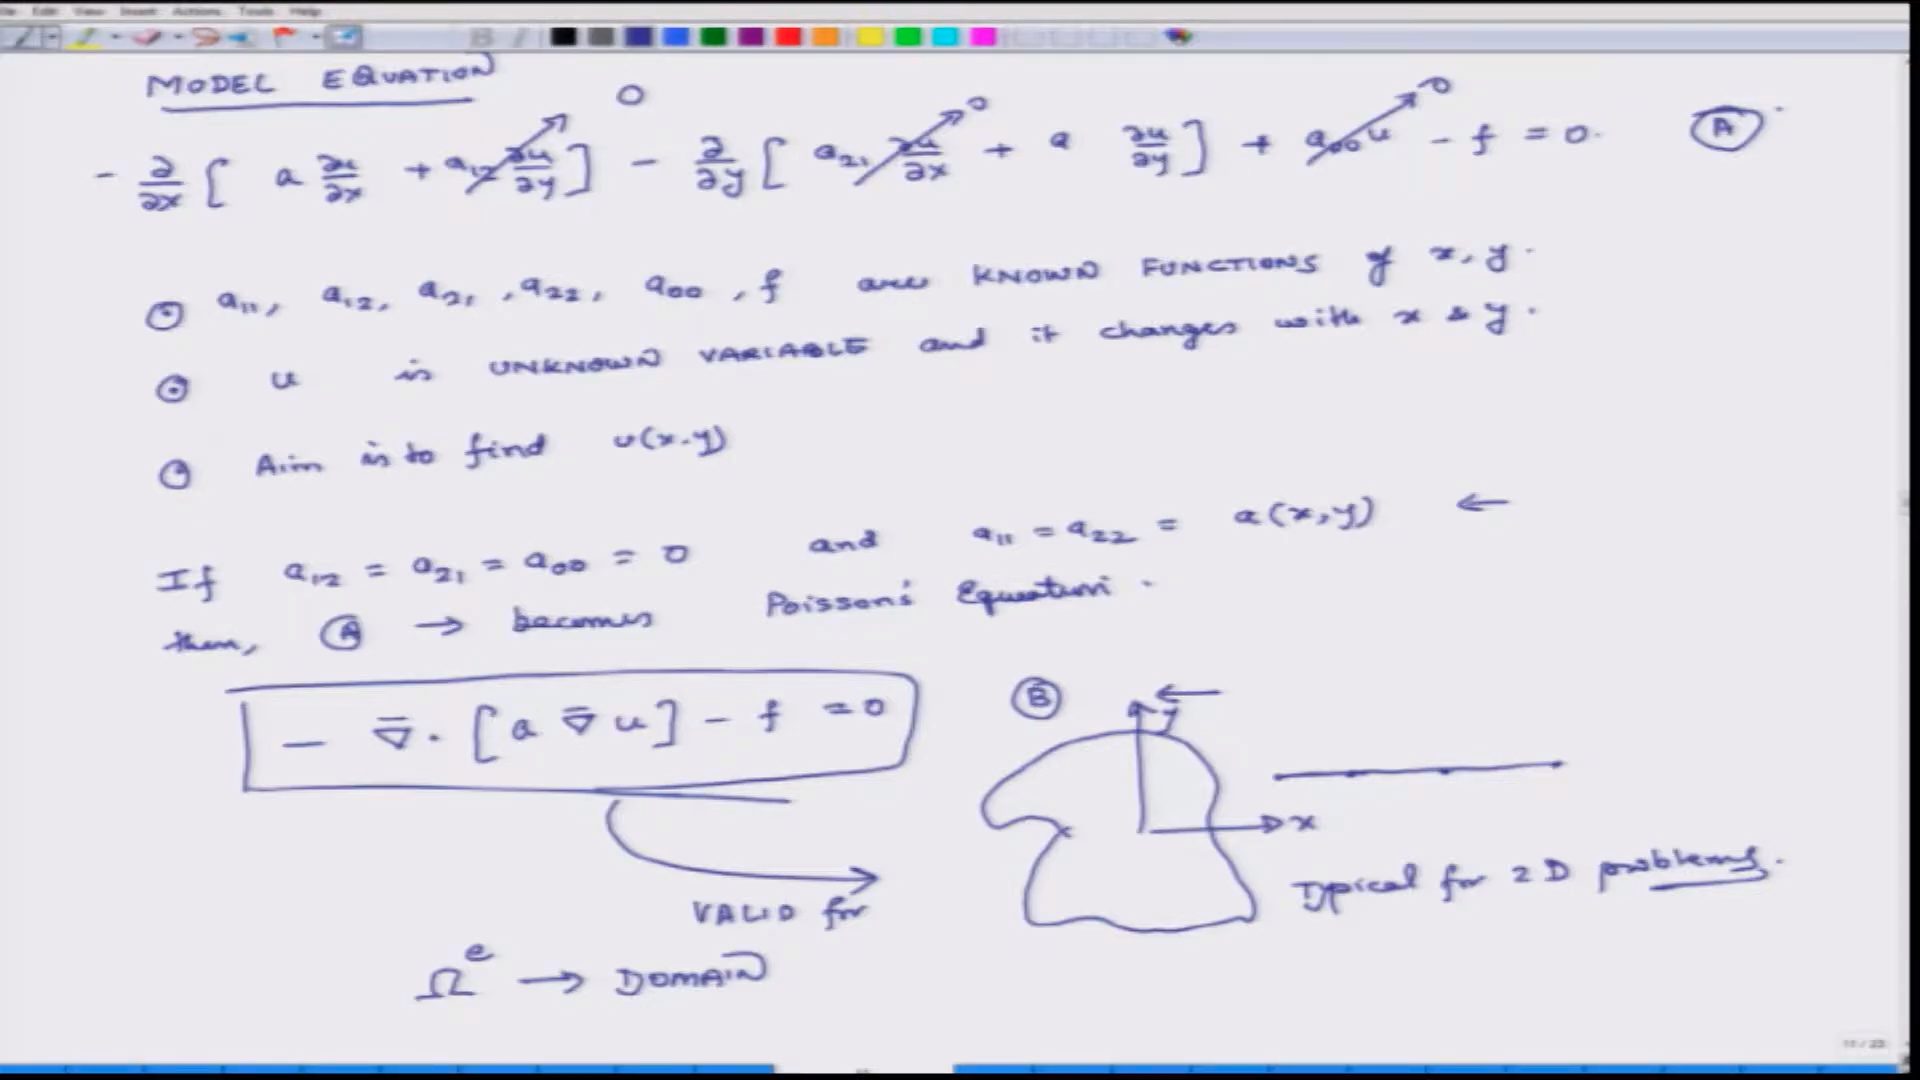 MODEL EQUATION
- ∂/∂x [ a ∂u/∂x + a₁₂ ∂u/∂y ] 0 - ∂/∂y [ a₂₁ ∂u/∂x 0 + a ∂u/∂y ] + a₀₀ u 0 - f = 0. (A)
⊙ a₁₁, a₁₂, a₂₁, a₂₂, a₀₀, f are KNOWN FUNCTIONS of x, y.
⊙ u is UNKNOWN VARIABLE and it changes with x & y.
⊙ Aim is to find u(x.y)
If a₁₂ = a₂₁ = a₀₀ = 0 and a₁₁ = a₂₂ = a(x,y) ←
then, (A) → becomes Poisson's Equation.
- ∇̄ · [a ∇̄ u] - f = 0 (B)
y
x
Typical for 2D problems.
VALID for
Ωᵉ → DOMAIN
11 / 23